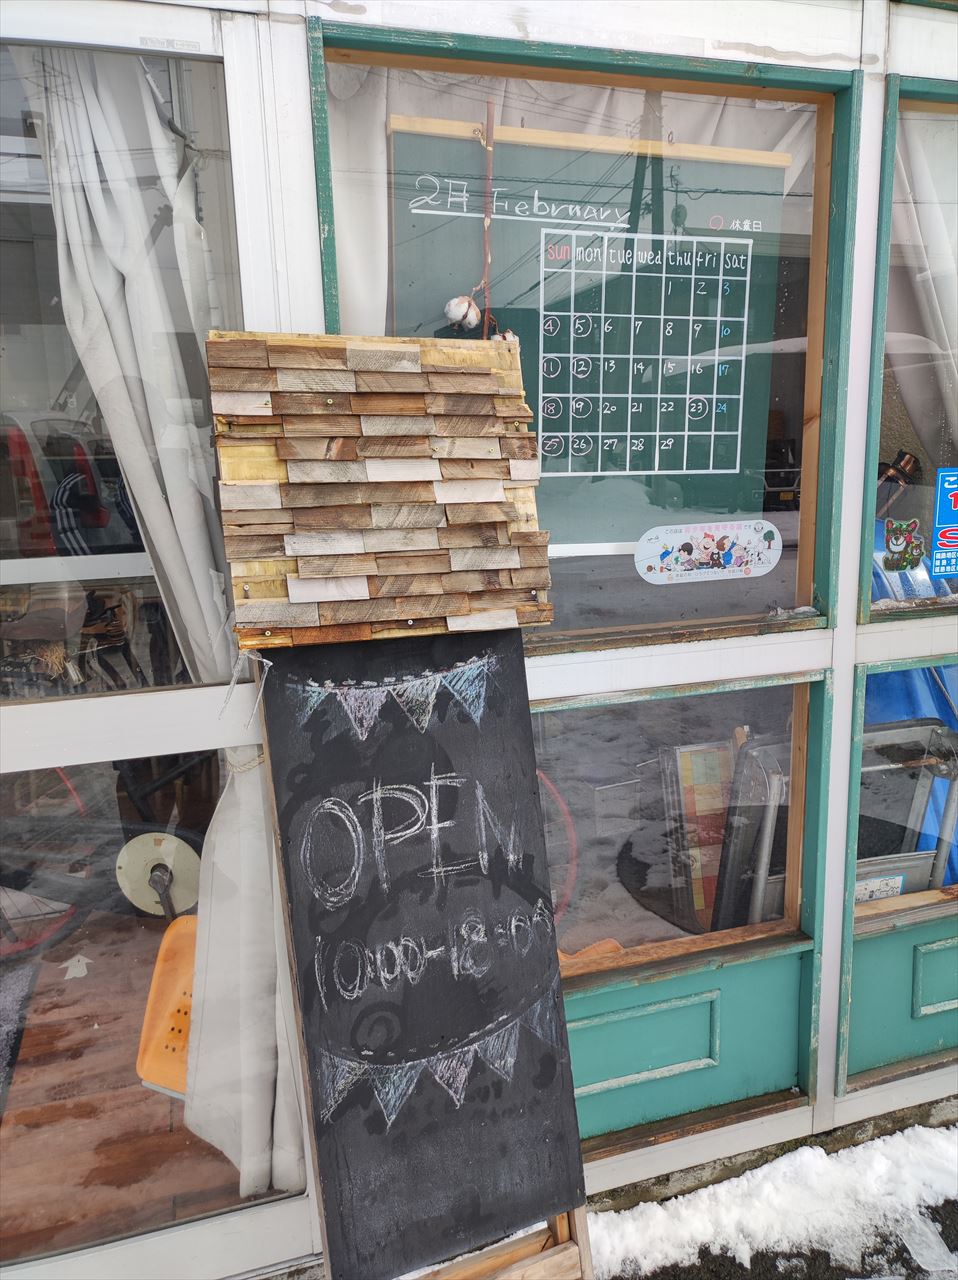 2月 February
○ 休業日
sun mon tue wed thu fri sat
1 2 3
4 5 6 7 8 9 10
11 12 13 14 15 16 17
18 19 20 21 22 23 24
25 26 27 28 29
この店は 青少年を見守る店 です
OPEN
10:00-18:00